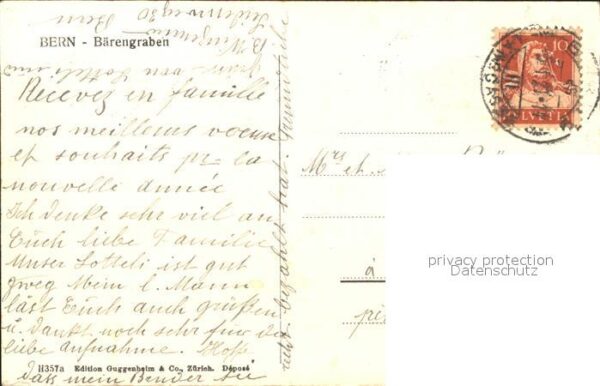 BERN - Bärengraben
Recevez en famille
nos meilleurs voeux
et souhaits pr. la
nouvelle année
Ich denke sehr viel an
Euch liebe Familie
Unser Lotteli ist gut
zweg Mein l. Mann
läst Euch auch grüßen
u. dankt noch sehr für die
liebe aufnahme. Hoffe
dass mein Bruder sie
H357a Edition Guggenheim & Co., Zürich. Déposé
bezahlt hat.
30
Bern
von Lotteli
10
HELVETIA
III
Mrs et.
à
privacy protection
Datenschutz